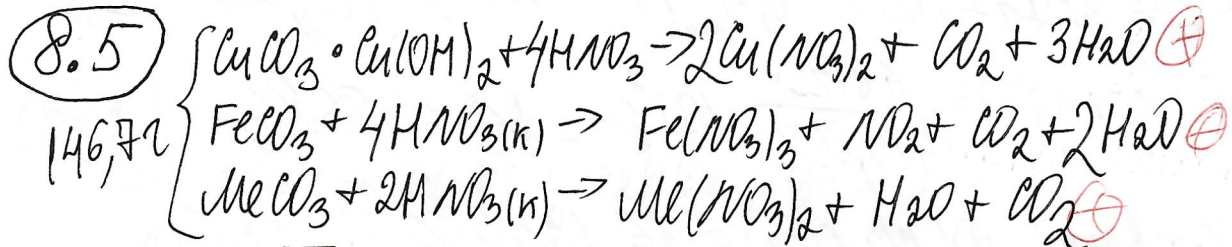 8.5 CuCO₃·Cu(OH)₂ + 4HNO₃ → 2Cu(NO₃)₂ + CO₂ + 3H₂O +
146,7г FeCO₃ + 4HNO₃(к) → Fe(NO₃)₃ + NO₂ + CO₂ + 2H₂O +
MeCO₃ + 2HNO₃(к) → Me(NO₃)₂ + H₂O + CO₂ +